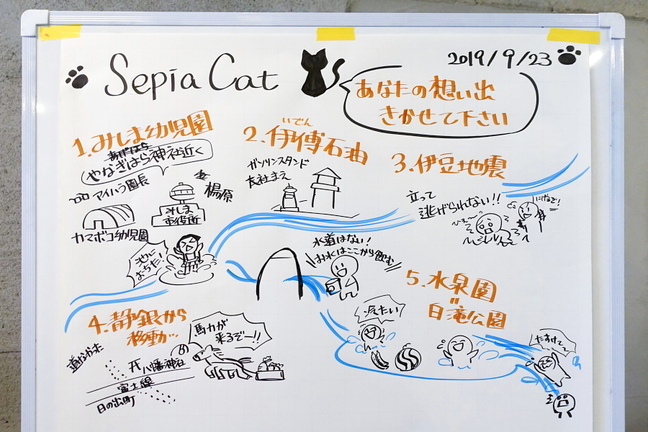 Sepia Cat
2019/9/23
あなたの想い出
きかせて下さい
1.みしま幼児園
やなぎはら神社近く
アイハラ園長
楊原
みしま
市役所
カマボコ幼児園
池に
おちた!
2.伊傳石油
いでん
ガソリンスタンド
大社まえ
3.伊豆地震
立って
逃げられない!!
水道はない!
お水はここから飲む
4.静銀から
移動か…
馬力が
来るぞー!!
八幡神社
富士線
日の出町
5.水泉園
=
白滝公園
冷たい!
たすけて〜